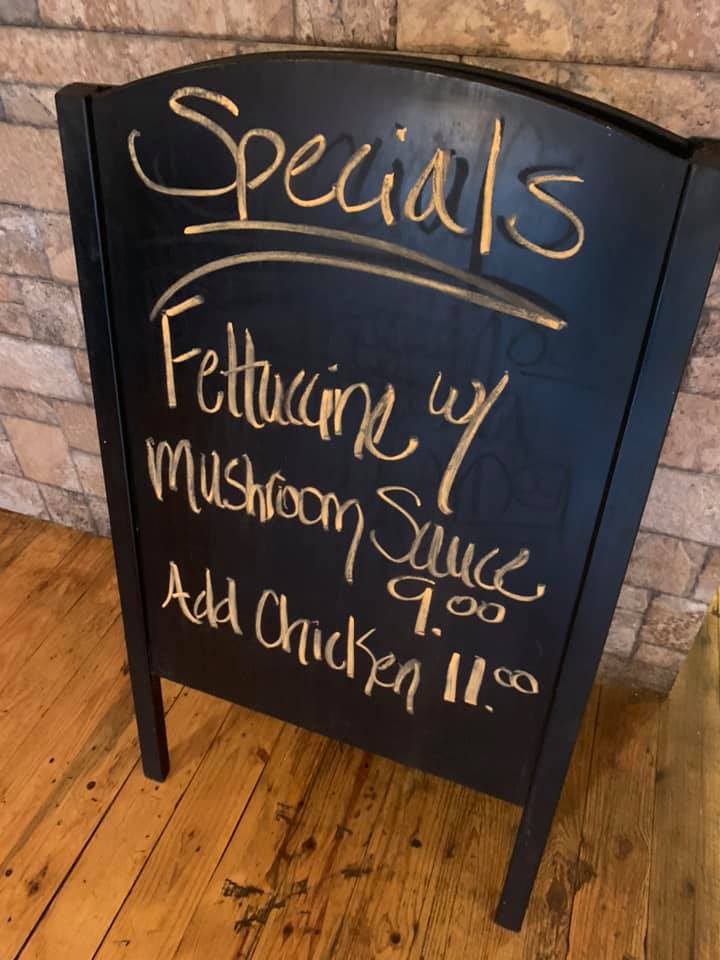 Specials
Fettuccine w/
Mushroom Sauce
9.00
Add Chicken 11.00